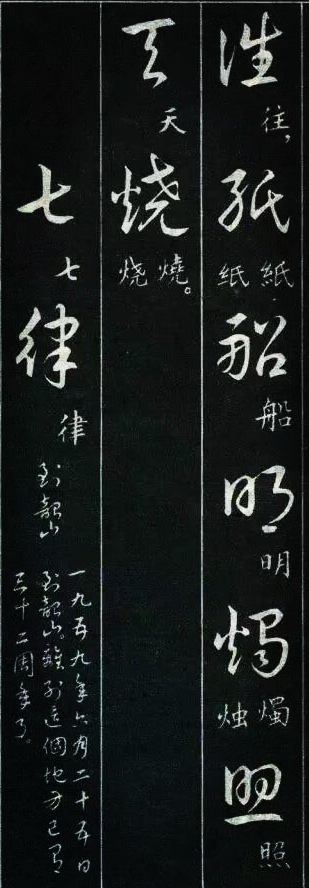 往往，紙紙纸船船明明燭燭烛照照
天天燒燒。烧
七七律律到韶山
一九五九年六月二十五日
到韶山。離別這個地方已有
三十二周年了。